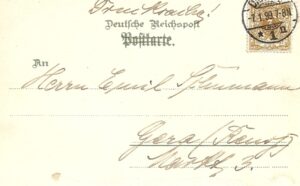 Drucksache!
Deutsche Reichspost
Postkarte.
An
Herrn Emil
Gera (Reuss)
Markt 3.